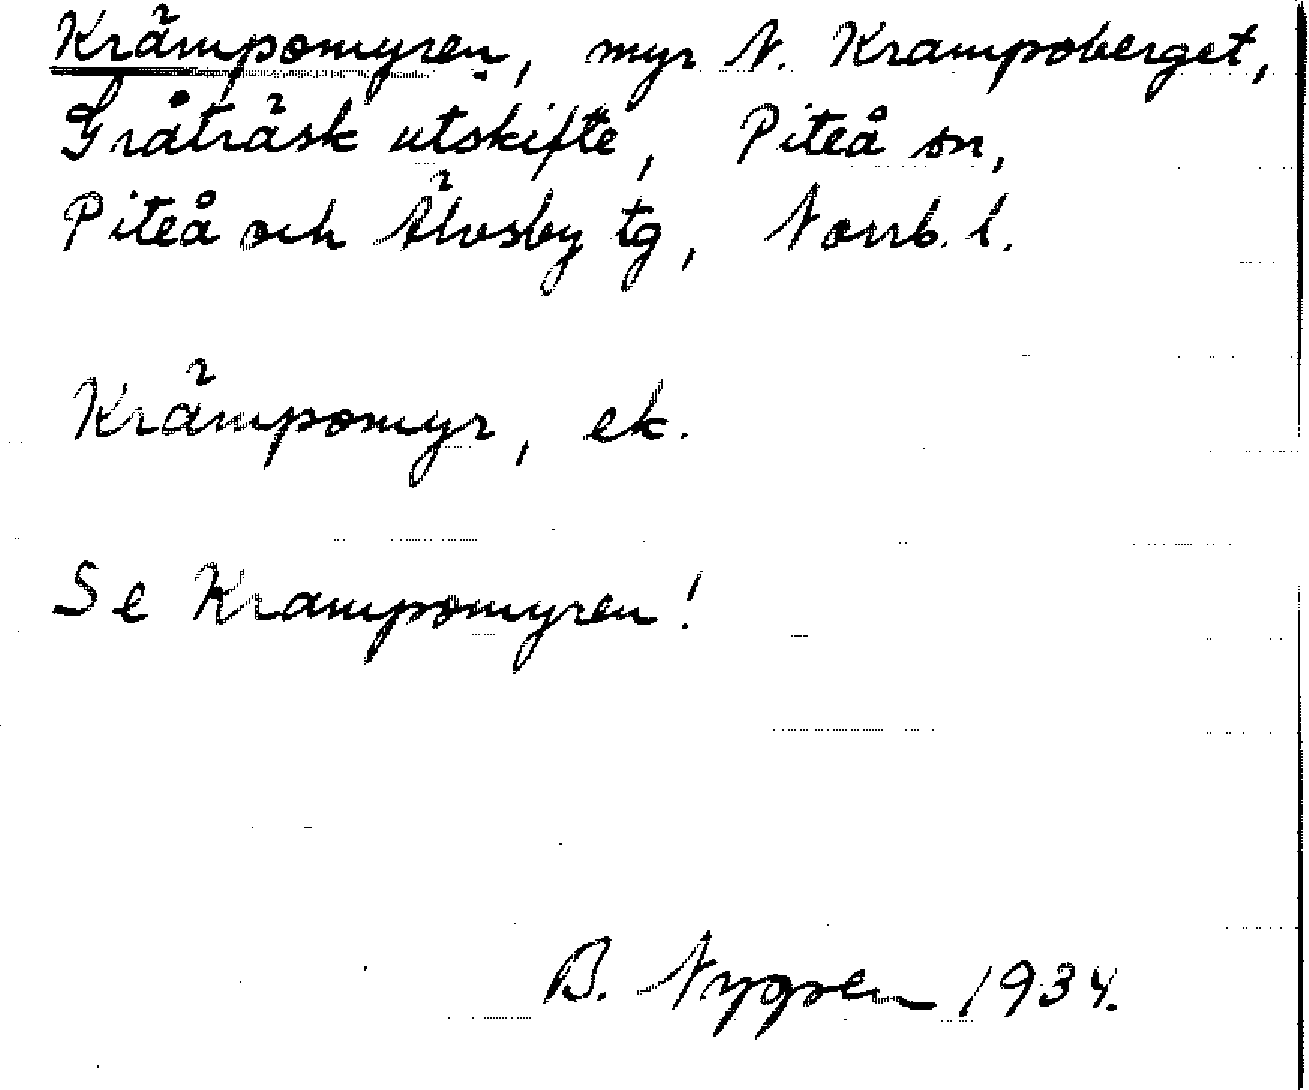 Krämpomyren, myr N. Krampoberget,
Gråträsk utskifte, Piteå sn,
Piteå och Älvsby tg, Norrb. l.
Krämpomyr, ek.
Se Krampomyren!
B. Nygren 1934.